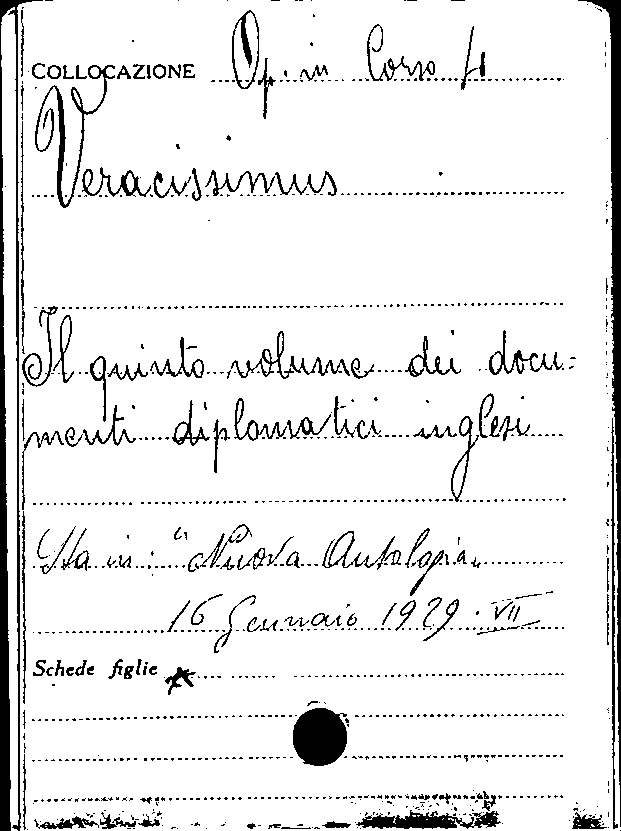 COLLOCAZIONE Op. in Corso 4
Veracissimus
Il quinto volume dei docu=
menti diplomatici inglesi
Sta in: "Nuova Antologia"
16 Gennaio 1929. VII
Schede figlie